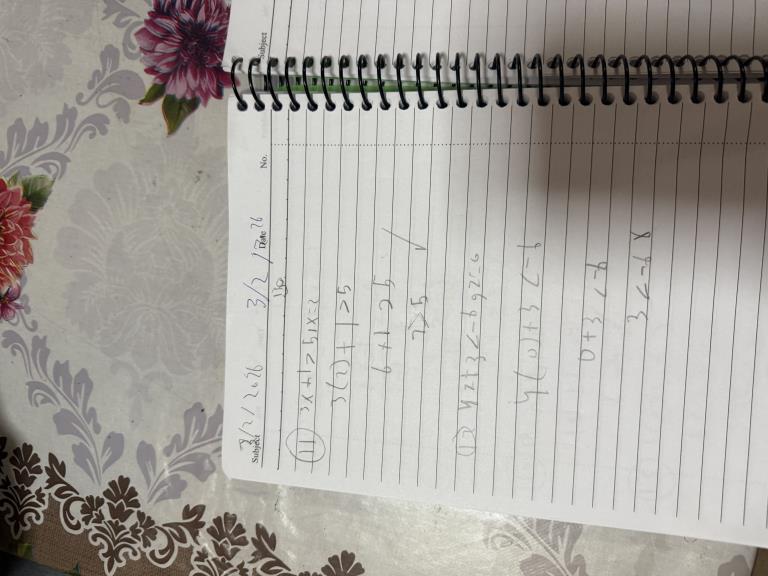 Subject 3/2/2026 3/2/2026 Date No.
(11) 3x+1>5, x=2
3(2)+1>5
6+1>5
7>5 ✓
(12) 4z+3<-6, z=0
4(0)+3<-6
0+3<-6
3<-6 x
Subject